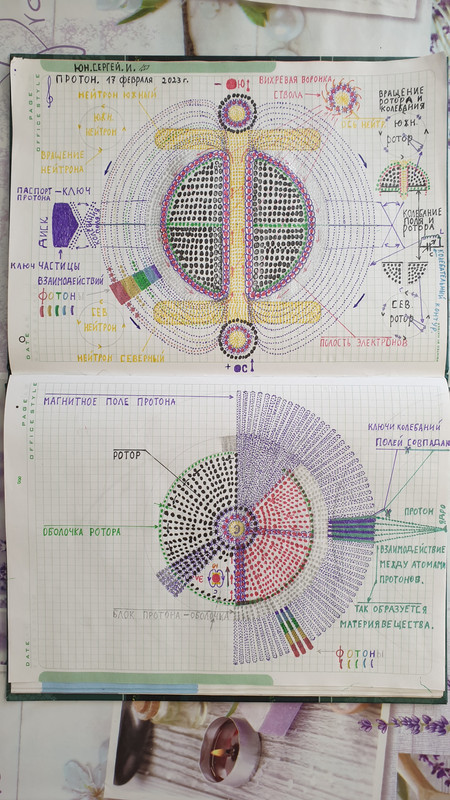 ЮН.СЕРГЕЙ.И.
ПРОТОН. 17 ФЕВРАЛЯ 2023г.
PAGE
OFFICE STYLE
НЕЙТРОН ЮЖНЫЙ
ЮЖН
НЕЙТРОН
ВРАЩЕНИЕ
НЕЙТРОНА
- Ю
ВИХРЕВАЯ ВОРОНКА
СТВОЛА
ВРАЩЕНИЕ
РОТОРА И
КОЛЕБАНИЯ
ЮЖН.
РОТОР
ПАСПОРТ-КЛЮЧ
ПРОТОНА
ДИСК
КОЛЕБАНИЕ
ПОЛЯ И
РОТОРА
КЛЮЧ ЧАСТИЦЫ
ВЗАИМОДЕЙСТВИЙ
ФОТОНЫ
СЕВ
НЕЙТРОН
НЕЙТРОН СЕВЕРНЫЙ
+ С
ПОЛОСТЬ ЭЛЕКТРОНОВ
СЕВ.
РОТОР
DATE
PAGE
OFFICE STYLE
МАГНИТНОЕ ПОЛЕ ПРОТОНА
КЛЮЧИ КОЛЕБАНИЙ
ПОЛЕЙ СОВПАДАЮ
РОТОР
ОБОЛОЧКА РОТОРА
ПРОТОН
ЯДРО
ВЗАИМОДЕЙСТВИЕ
МЕЖДУ АТОМАМИ
ПРОТОНОВ.
БЛОК ПРОТОНА-ОБОЛОЧКА
ТАК ОБРАЗУЕТСЯ
МАТЕРИЯ ВЕЩЕСТВА.
ФОТОНЫ
DATE